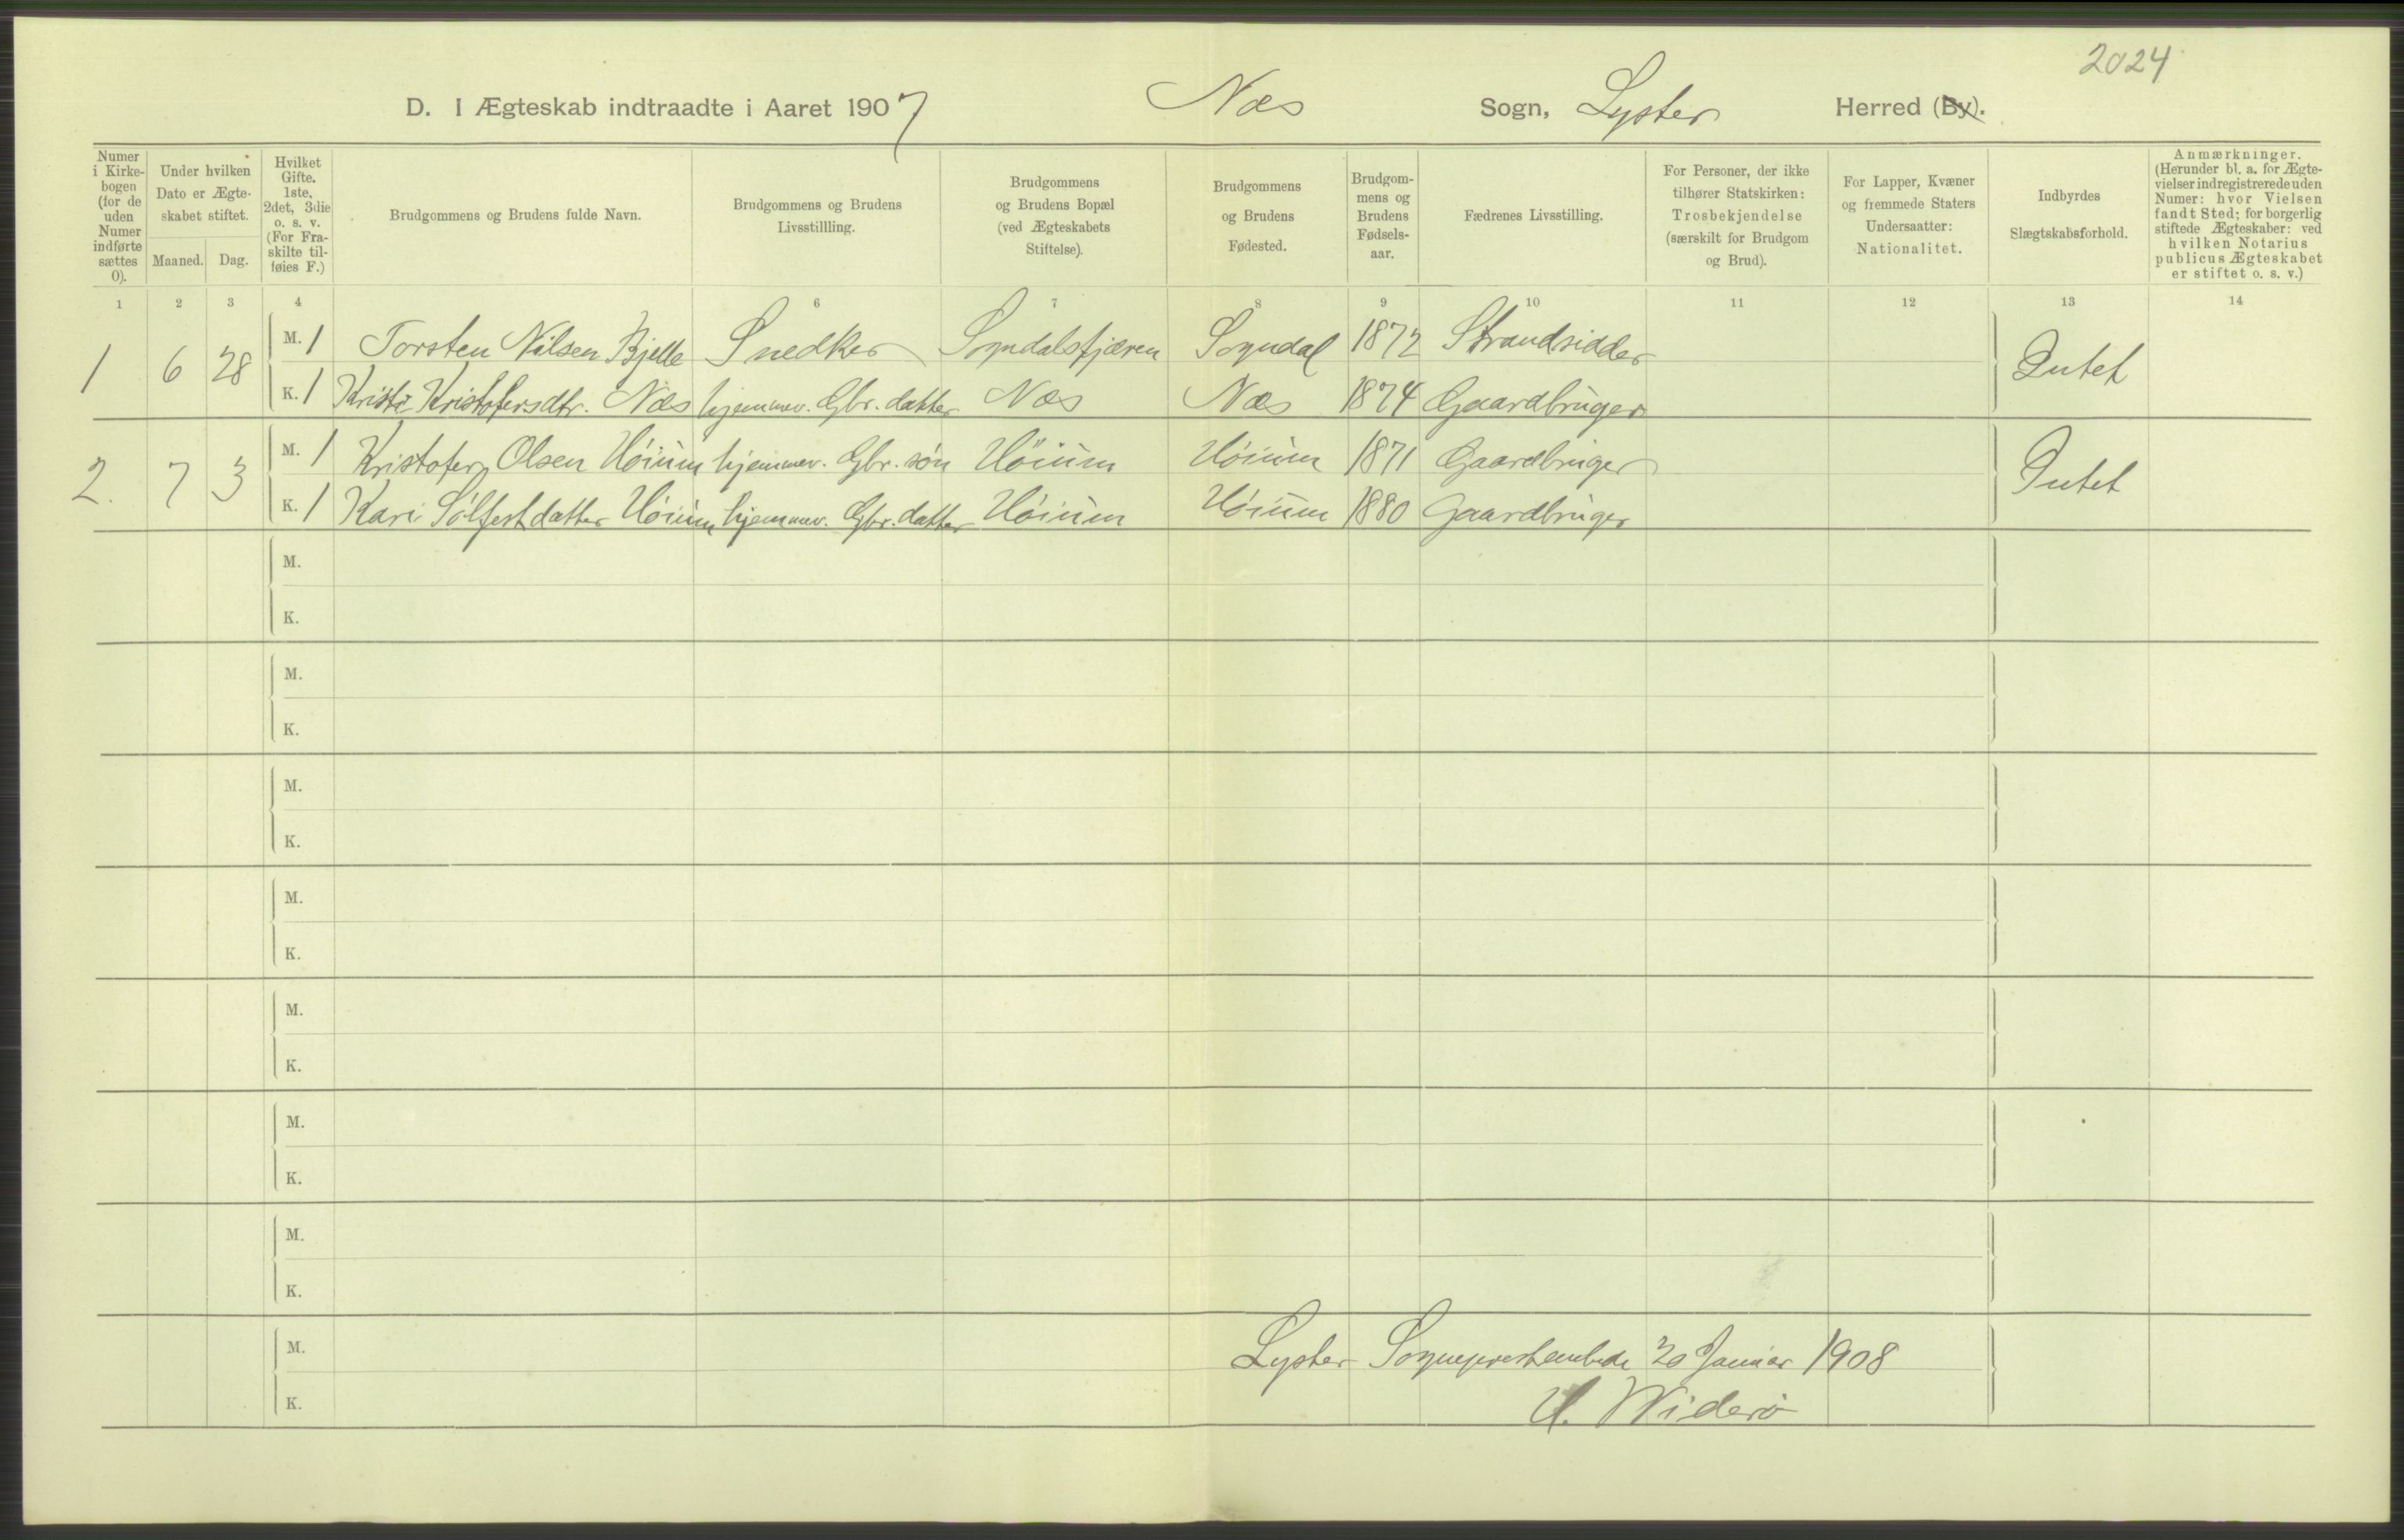 2024
D. I Ægteskab indtraadte i Aaret 1907 Næs Sogn, Lyster Herred (By).
Numer i Kirkebogen (for de uden Numer indførte sættes 0).
Under hvilken Dato er Ægteskabet stiftet.
Maaned. Dag.
Hvilket Gifte. 1ste, 2det, 3die o. s. v. (For Fraskilte tilføies F.)
Brudgommens og Brudens fulde Navn.
Brudgommens og Brudens Livsstillling.
Brudgommens og Brudens Bopæl (ved Ægteskabets Stiftelse).
Brudgommens og Brudens Fødested.
Brudgommens og Brudens Fødselsaar.
Fædrenes Livsstilling.
For Personer, der ikke tilhører Statskirken: Trosbekjendelse (særskilt for Brudgom og Brud).
For Lapper, Kvæner og fremmede Staters Undersaatter: Nationalitet.
Indbyrdes Slægtskabsforhold.
Anmærkninger. (Herunder bl. a. for Ægtevielser indregistrerede uden Numer: hvor Vielsen fandt Sted; for borgerlig stiftede Ægteskaber: ved hvilken Notarius publicus Ægteskabet er stiftet o. s. v.)
1 2 3 4 6 7 8 9 10 11 12 13 14
1 6 28 M. 1 Torsten Nilsen Bjelle Snedker Sogndalsfjæren Sogndal 1872 Strandsidder Intet
K. 1 Kristi Kristofersdtr. Næs hjemmev. Gbr. datter Næs Næs 1874 Gaardbruger
2. 7 3 M. 1 Kristofer Olsen Høium hjemmev. Gbr. søn Høium Høium 1871 Gaardbruger Intet
K. 1 Kari Sølfestdatter Høium hjemmev. Gbr. datter Høium Høium 1880 Gaardbruger
M.
K.
M.
K.
M.
K.
M.
K.
M.
K.
M.
K.
M.
K.
M. Lyster Sogneprestembede 20 Januar 1908
K. H. Widerø